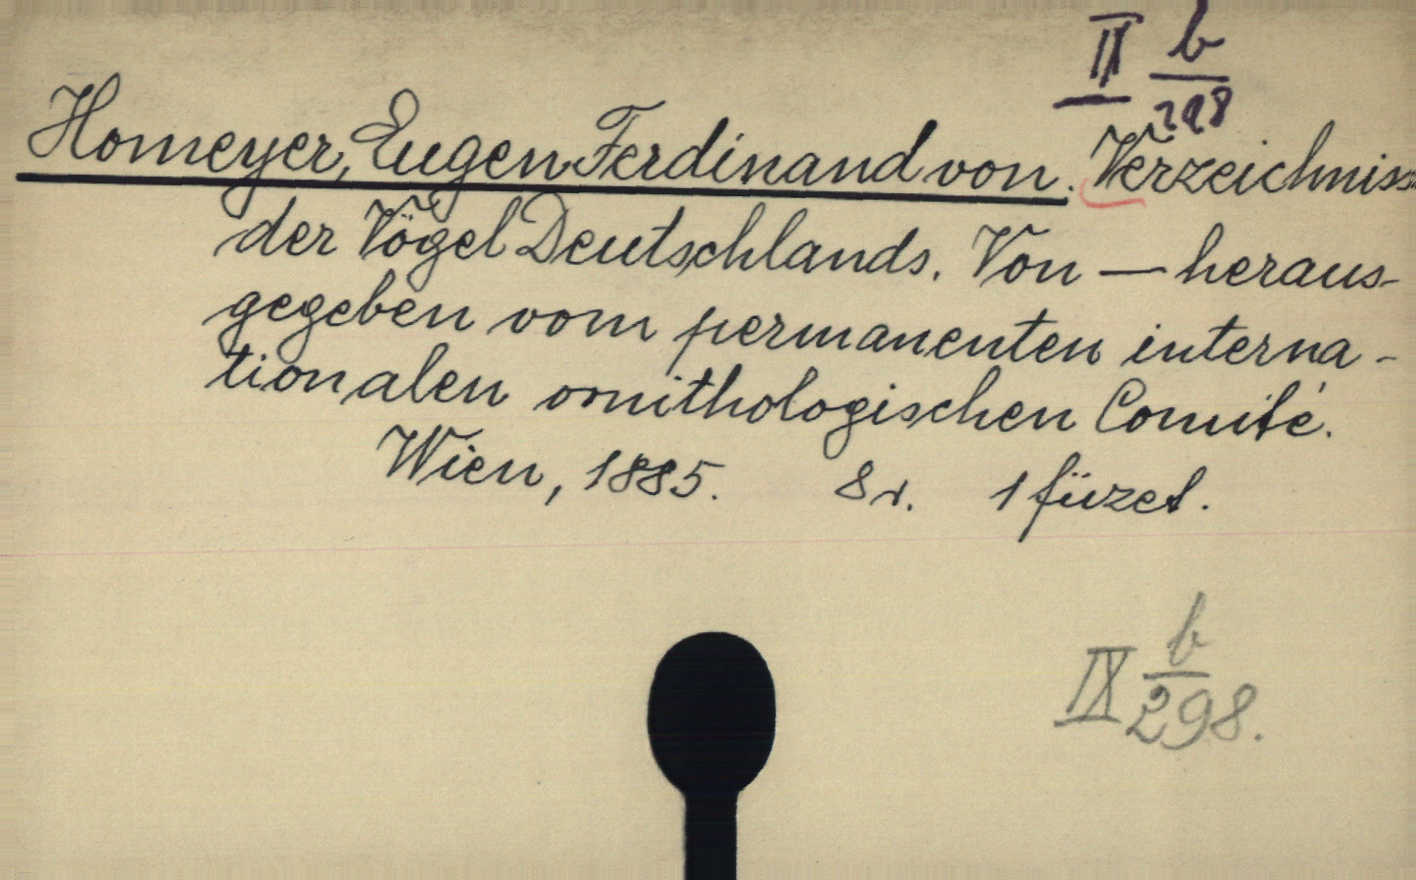 IX b
298
Homeyer, Eugen Ferdinand von. Verzeichniss
der Vögel Deutschlands. Von — heraus-
gegeben vom permanenten interna-
tionalen ornithologischen Comité.
Wien, 1885. 8r. 1 füzet.
IX b
298.